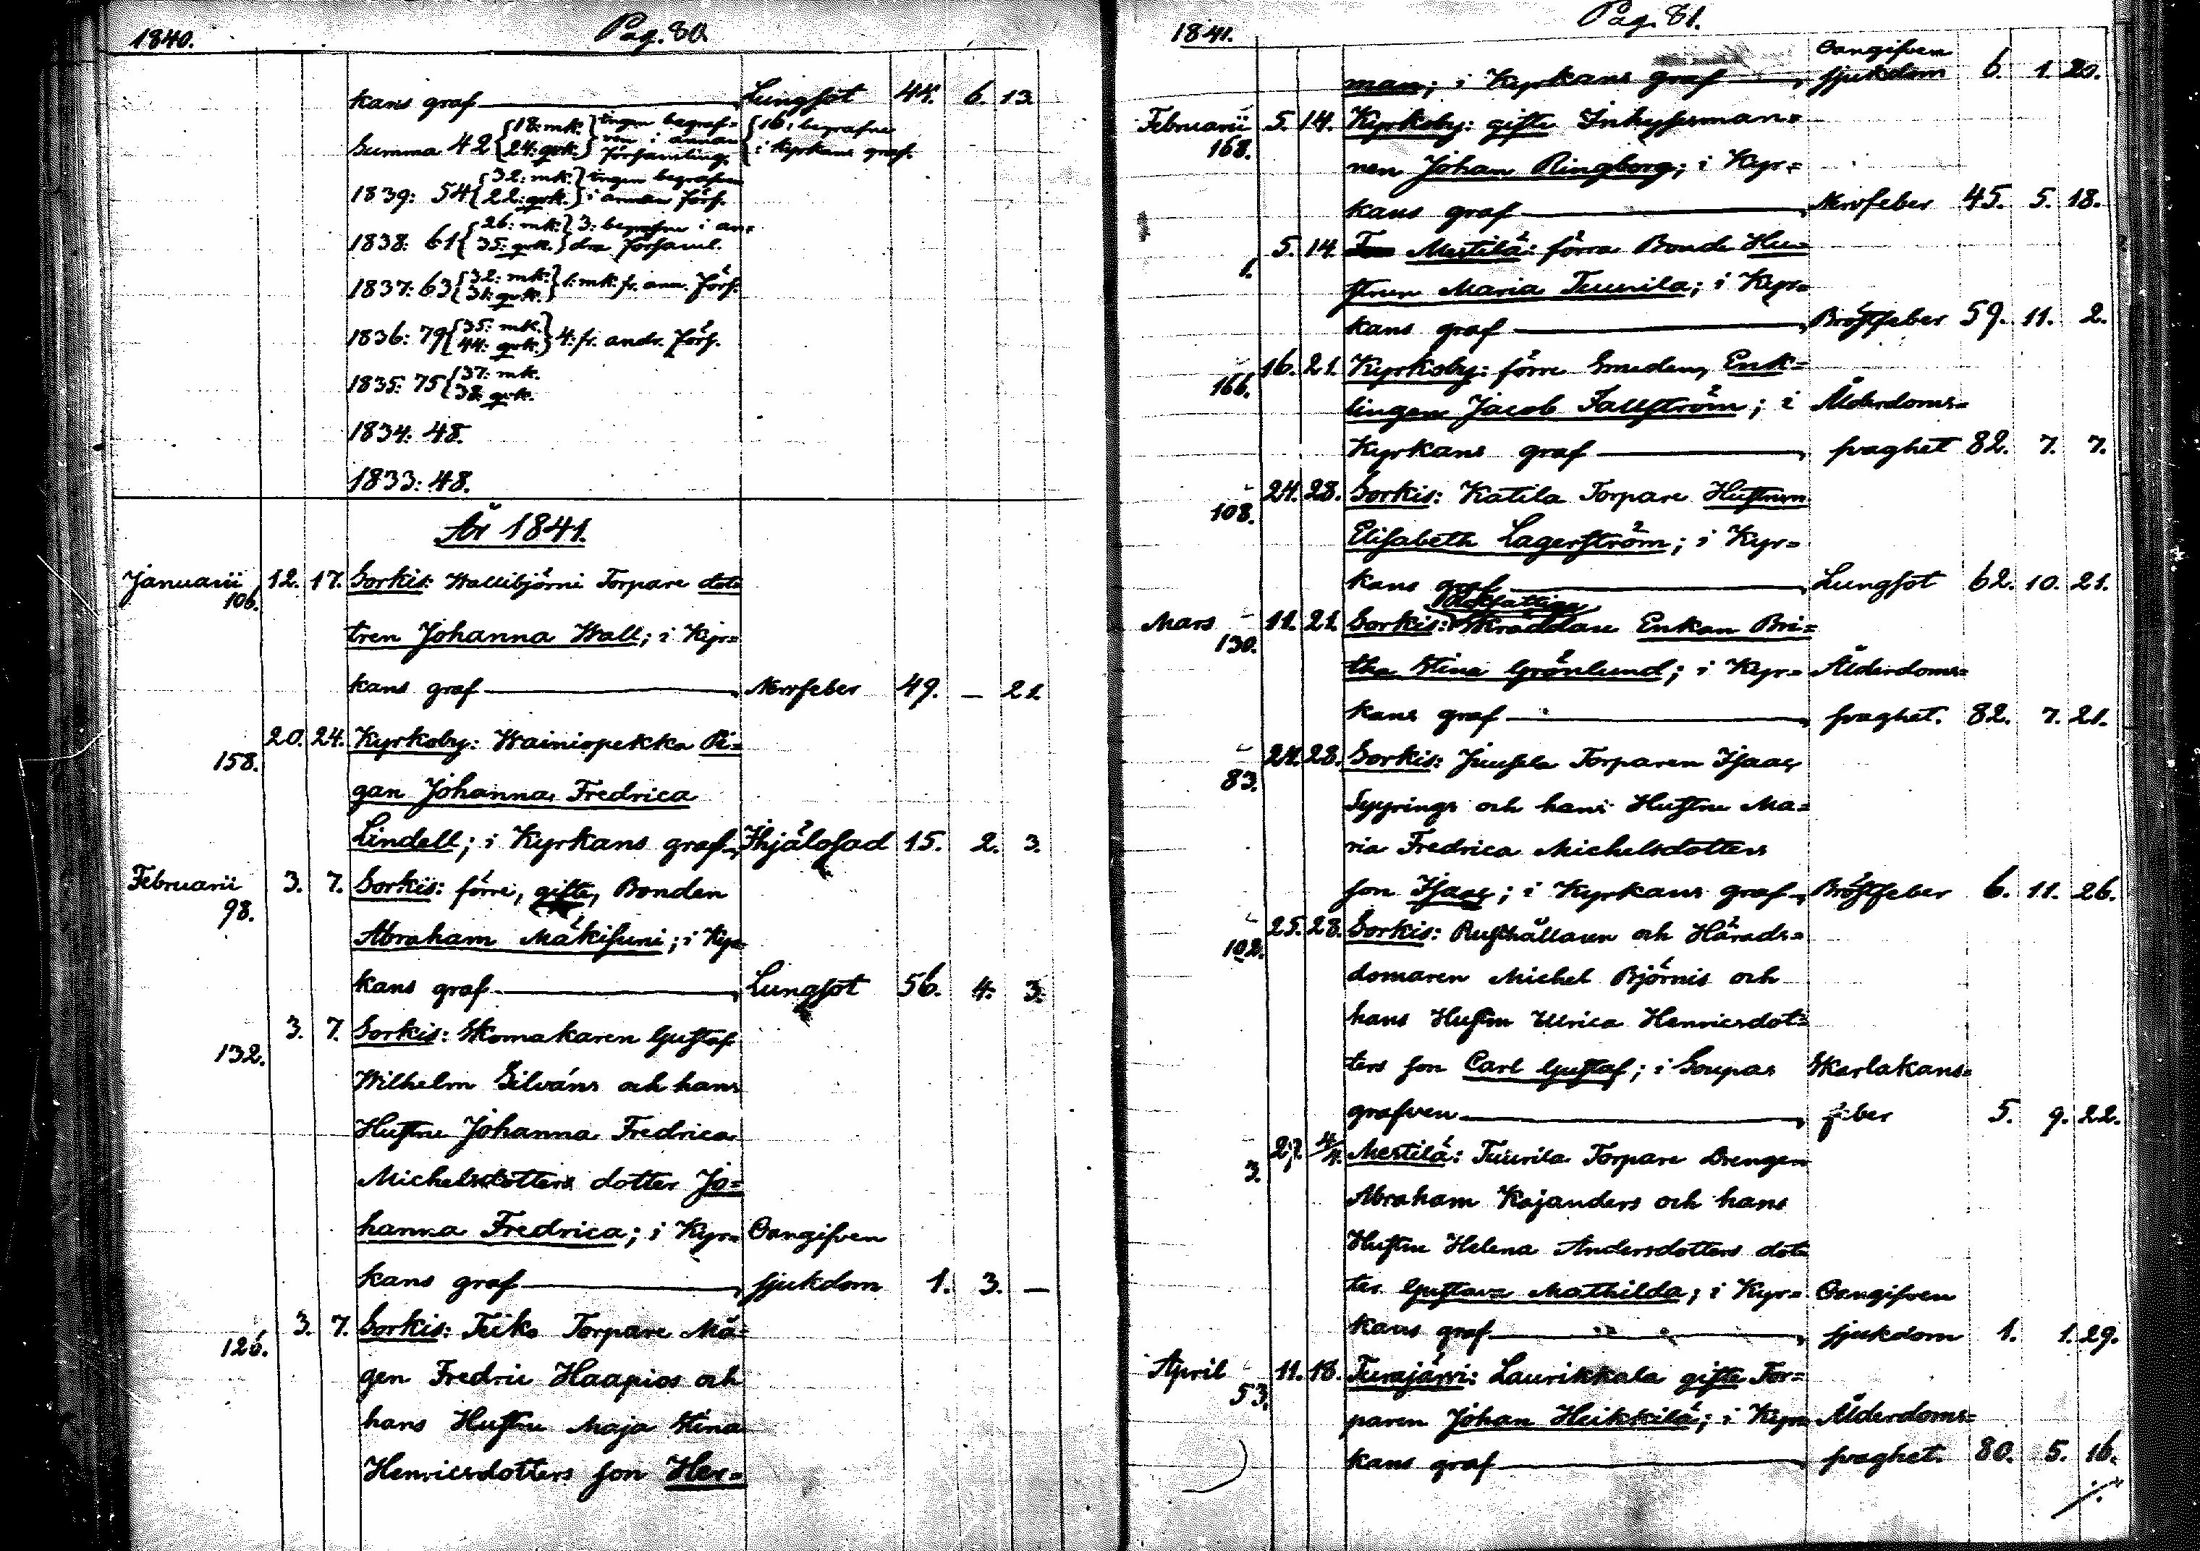 1840.
Pag. 80.
kans graf Lungsot 44. 6. 13.
Summa 42 { 18: mk. 24: qvk. } ingen begraf= ven i annan församling. { 16: begrafne i Kyrkans graf.
1839: 54 { 32: mk. 22: qvk. } ingen begrafven i annan förs.
1838: 61 { 26: mk. 35: qvk. } 3: begrafne i an= dra församl.
1837: 63 { 32: mk. 31: qvk. } 1: mk. fr. ann. förs.
1836: 79 { 35: mk. 44: qvk. } 4: fr. andr. förs.
1835: 75 { 37: mk. 38: qvk.
1834: 48.
1833: 48.
År 1841.
Januarii 12. 17. Sorkis: Wallibjörni Torpare dot=
106.
tren Johanna Wall; i Kyr=
kans graf Nervfeber 49. — 21.
20. 24. Kyrkoby: Wainiopekka Pi=
158.
gan Johanna Fredrica
Lindell; i Kyrkans graf Ihjälosad 15. 2. 3.
Februarii 3. 7. Sorkis: förre, gifte, Bonden
98.
Abraham Mäkisuni; i Kyr=
kans graf Lungsot 56. 4. 3.
3. 7. Sorkis: Skomakaren Gustaf
132.
Wilhelm Silváns och hans
Hustru Johanna Fredrica
Michelsdotters dotter Jo=
hanna Fredrica; i Kyr= Oangifven
kans graf sjukdom 1. 3. —
3. 7. Sorkis: Teiko Torpare Må=
126.
gen Fredric Haapios och
hans Hustru Maja Stina
Henricsdotters son Her=
1841.
Pag. 81.
Oangifven
man; i Kyrkans graf sjukdom 6. 1. 20.
Februarii 5. 14. Kyrkoby: gifte Inhysesman=
168.
nen Johan Ringborg; i Kyr=
kans graf Nervfeber 45. 5. 18.
5. 14. Mestilä: förra Bonde Hu=
1.
strun Maria Tuurila; i Kyr=
kans graf Bröstfeber 59. 11. 2.
16. 21. Kyrkoby: förre Smeden, Enk=
166.
lingen Jacob Fallström; i Ålderdoms=
Kyrkans graf svaghet 82. 7. 7.
24. 28. Sorkis: Katila Torpare Hustrun
108.
Elisabeth Lagerström; i Kyr=
kans graf Lungsot 62. 10. 21.
Mars 11. 21. Sorkis: Skraddare Enkan Bri=
130.
tha Stina Grönlund; i Kyr= Ålderdoms=
kans graf svaghet. 82. 7. 21.
24. 28. Sorkis: Juusela Torparen Isaac
83.
Syyrings och hans Hustru Ma=
ria Fredrica Michelsdotters
son Isaac; i Kyrkans graf Bröstfeber 6. 11. 26.
25. 28. Sorkis: Rusthållaren och Härads=
102.
domaren Michel Björnis och
hans Hustru Ulrica Henricsdot=
ters son Carl Gustaf; i Soupas Skarlakans=
grafven feber 5. 9. 22.
27. 4/4. Mestilä: Tuurila Torpare Drengen
3.
Abraham Kajanders och hans
Hustru Helena Andersdotters dot=
ter Gustava Mathilda; i Kyr= Oangifven
kans graf sjukdom 1. 1. 29.
April 11. 18. Turajärvi: Laurikkala gifte Tor=
53.
paren Johan Heikkilä; i Kyr= Ålderdoms=
kans graf svaghet. 80. 5. 16.